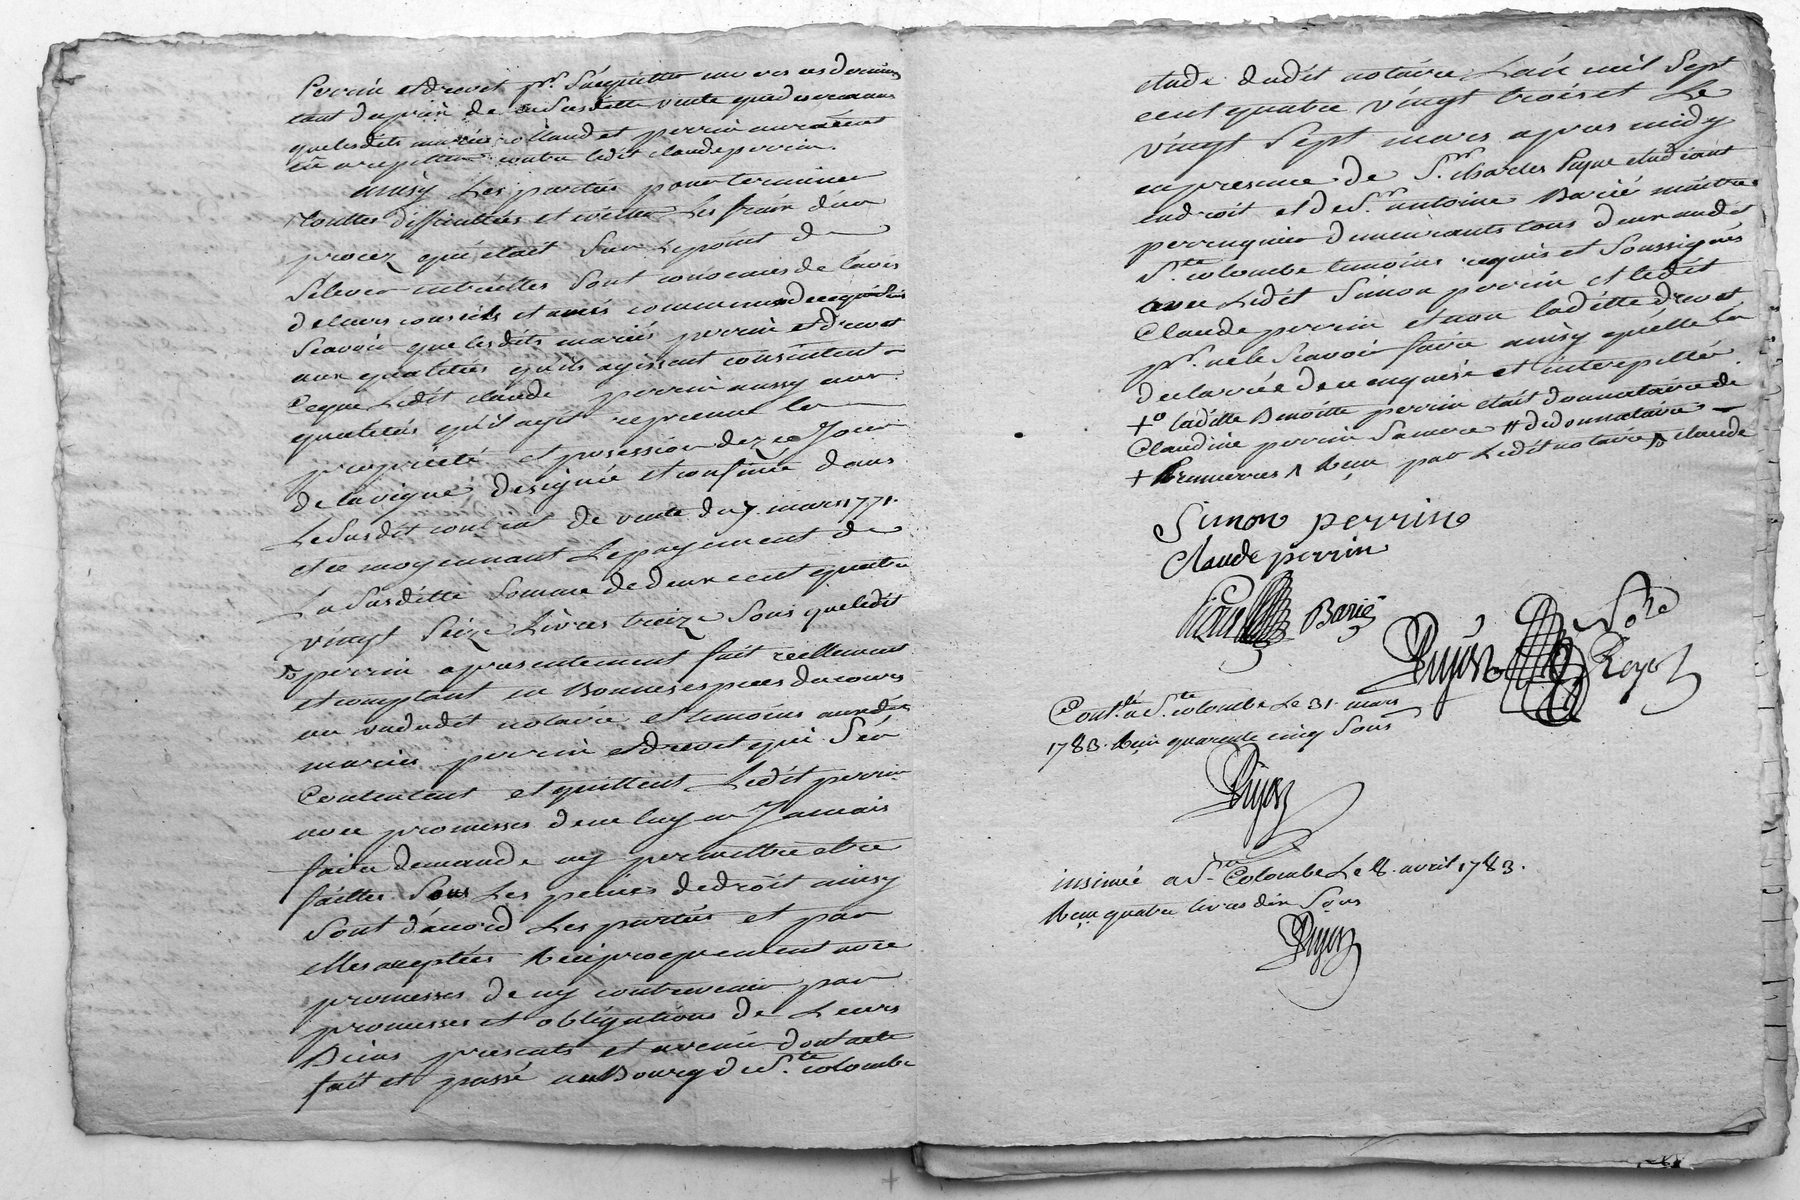 perrin et drevet pr. s'acquitter envers ces derniers
tant du prix de la susditte vente que des
que lesdits mariés rolland et perrin auraient
eü a repetter contre ledit claude perrin.
ainsy Les parties pour terminer
touttes difficultées et eviter Les fraix d'un
procez qui etait sur Le point de
s'elever entrelles sont convenues de l'avis
de leurs conseils et amis communs de ce qui suit
scavoir que lesdits mariés perrin et drevet
aux qualitées qu'ils agissent consentent a
ce que Ledit claude perrin aussy aux
qualités qu'il agit reprenne la
propriété et possession dez ce Jour
de la vigne designée et confinée dans
Le susdit contrat de vente du 7. mars 1771.
et ce moyennant Le payement de
La susditte somme de deux cent quatre
vingt seize Livres treize sous que ledit
perrin a presentement fait reellement
et comptant en Bonnes especes du cours
au vu dudit notaire et temoins auxdits
mariés perrin et drevet qui s'en
contentent et quittent Ledit perrin
avec promesses de ne luy en Jamais
faire demande ny permettre etre
faittes sous Les peines de droit ainsy
sont d'acord Les parties et par
elles acceptées Reciproquement avec
promesses de ny contrevenir par
promesses et obligations de Leurs
Biens presents et avenir dont acte
fait et passé au Bourg de Ste. colombe
etude dudit notaire L'an mil sept
cent quatre vingt trois et Le
vingt sept mars apres midy
en presence de Sr. charles etudiant
en droit et de Sr. antoine Barié maitre
perruquier demeurants tous deux audit
Ste. colombe temoins requis et soussignés
avec Ledit simon perrin et ledit
claude perrin et non laditte drevet
pr. ne le scavoir faire ainsy qu'elle l'a
declarée de ce enquise et interpellée
+° laditte Benoitte perrin etait donnataire de
Claudine perrin sa mere # de donnataire
+ premieres ^ Reçu par Ledit notaire claude
Simon perrin
claude perrin
Barié
Pujon Nore Royal
Contlé. a Ste. colombe Le 31. mars
1783. Reçu quarente cinq sous
Pujon
insinué a Ste. Colombe Le 8. avril 1783.
Reçu quatre livres dix sous
Pujon